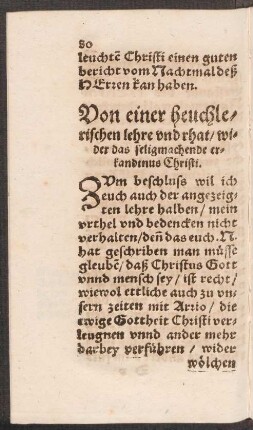 80
leuchtē Christi einen guten
bericht vom Nachtmal deß
HErren kan haben.
Von einer heuchle⸗
rischen lehre vnd rhat/ wi⸗
der das seligmachende er⸗
kandtnus Christi.
ZVm beschluss wil ich
euch auch der angezeig⸗
ten lehre halben/ mein
vrthel vnd bedencken nicht
verhalten/ deñ das euch. N.
hat geschriben man müsse
gleubē/ daß Christus Gott
vnnd mensch sey/ ist recht/
wiewol ettliche auch zu vn⸗
sern zeiten mit Arrio/ die
ewige Gottheit Christi ver⸗
leugnen vnnd ander mehr
darbey verführen/ wider
wölchen